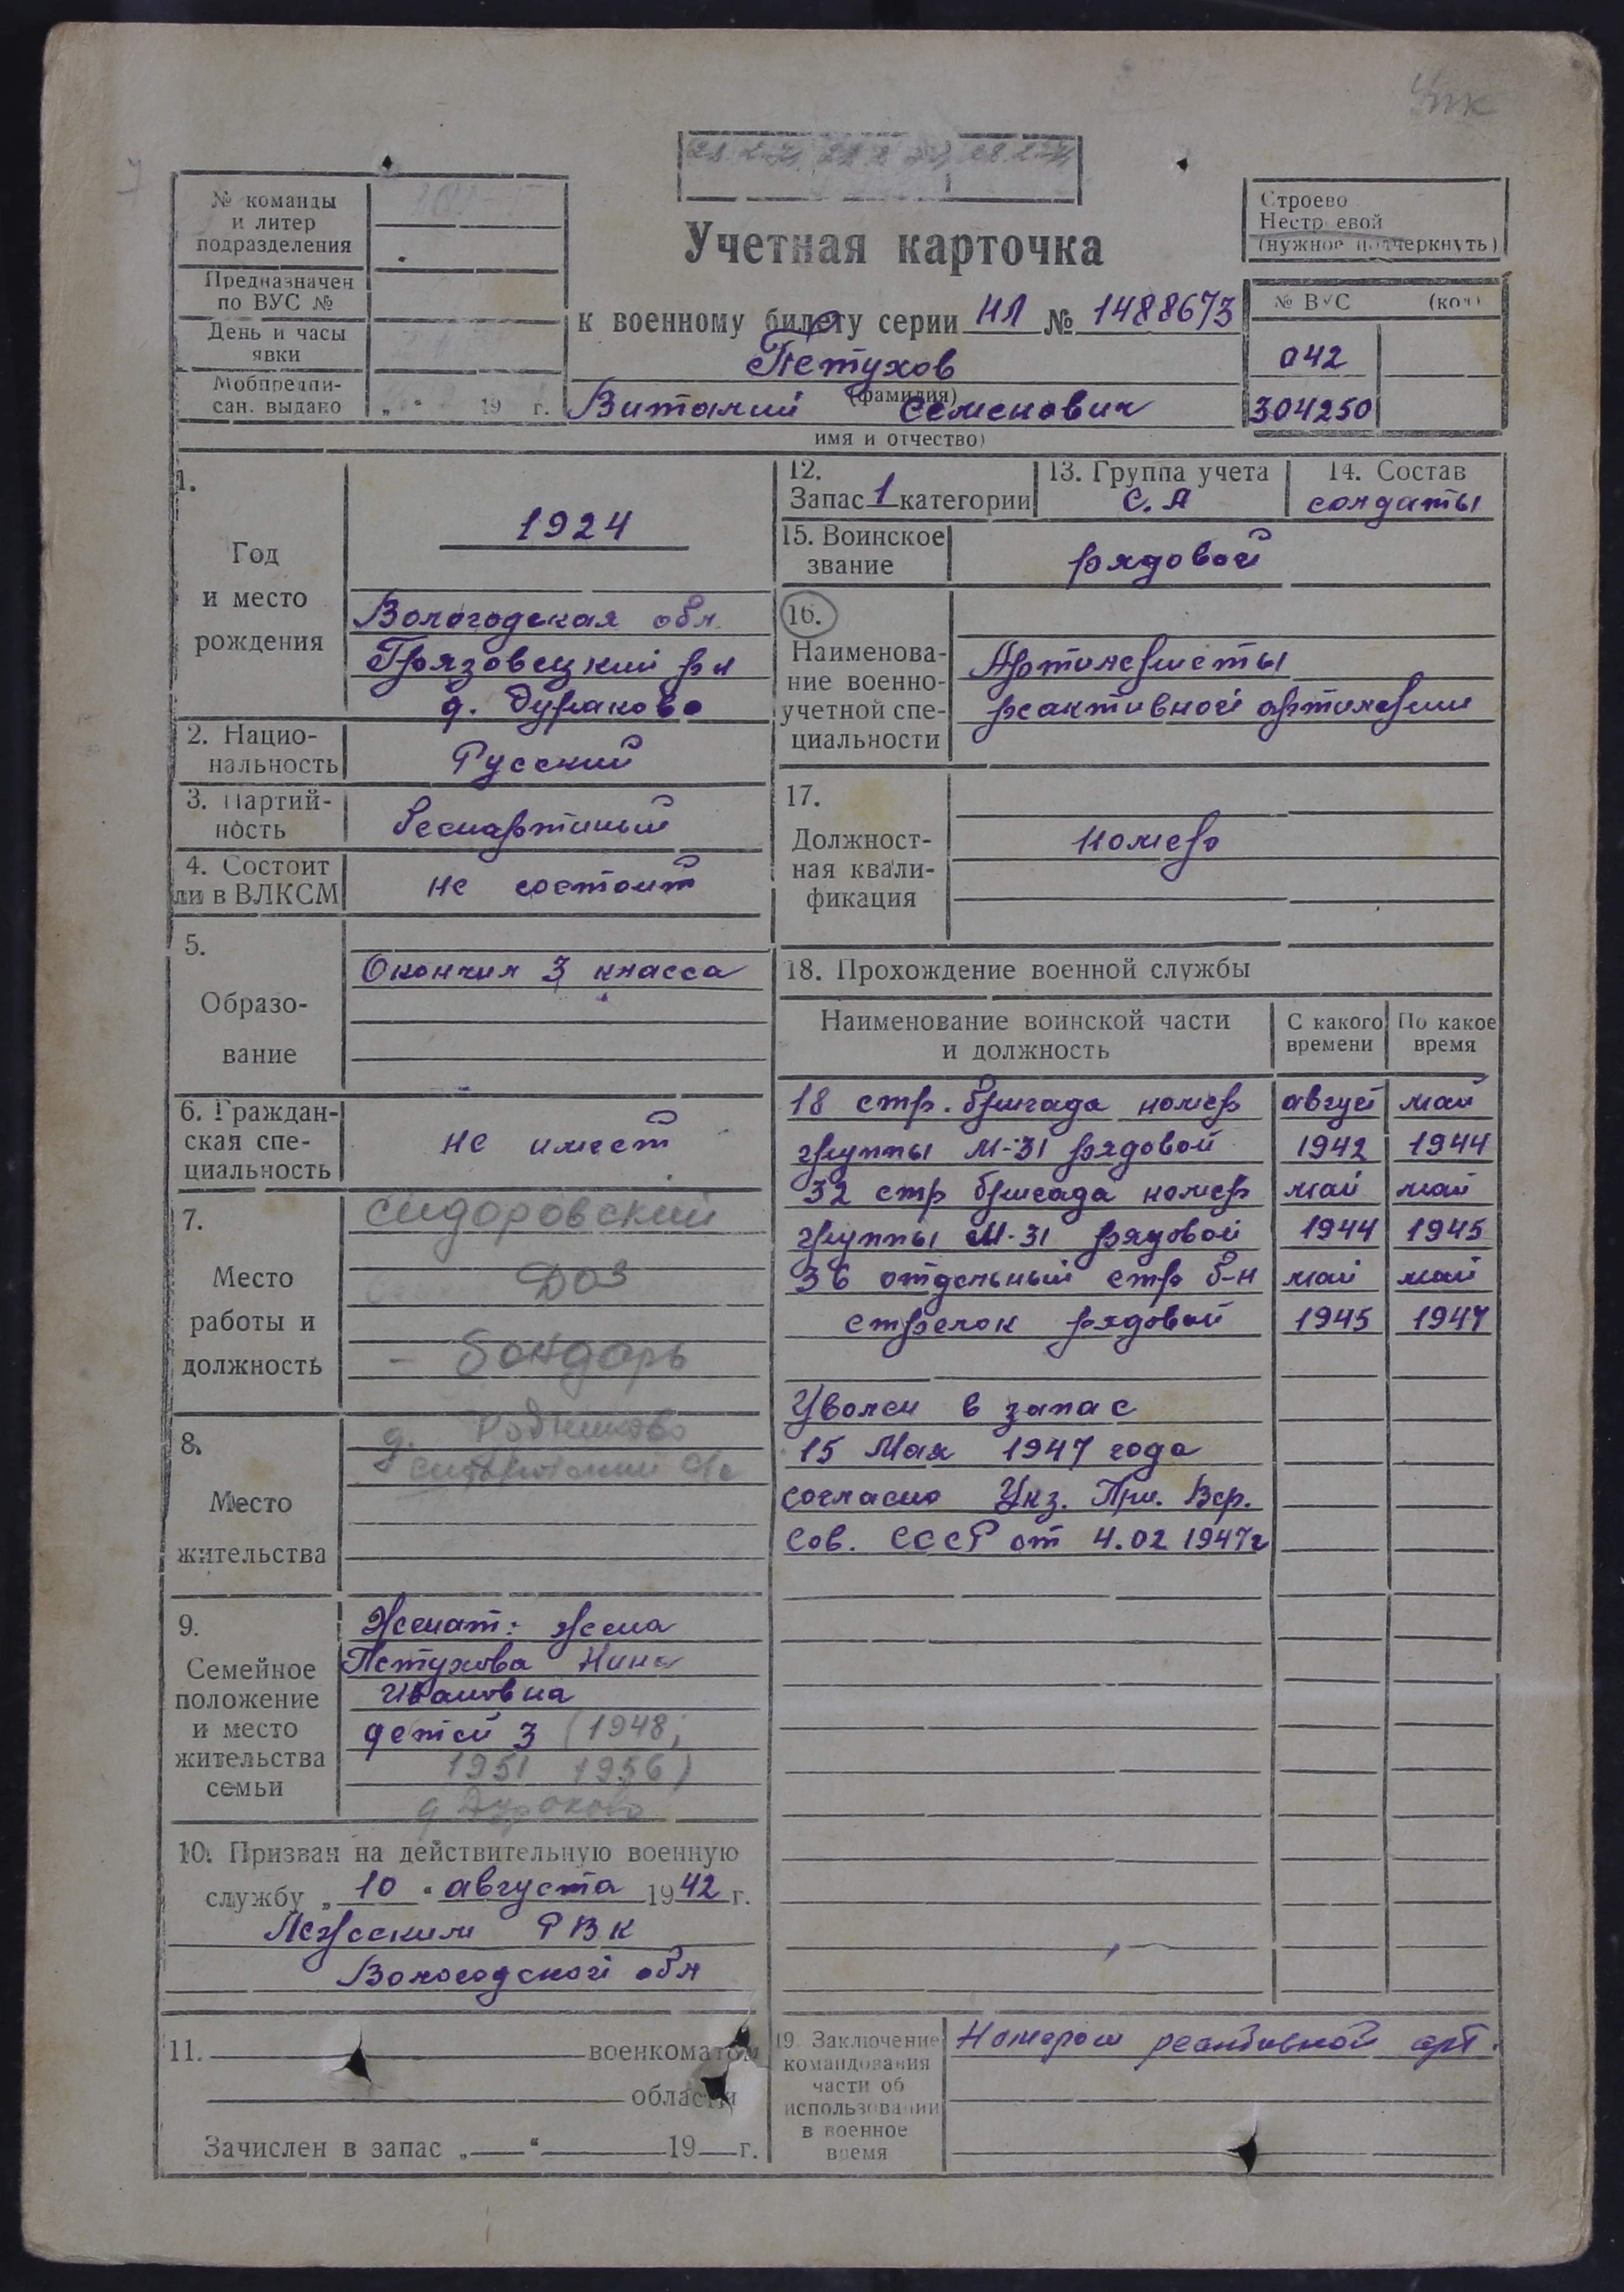 № команды
и литер
подразделения
Предназначен
по ВУС №
День и часы
явки
Мобпредпи-
сан. выдано „ “ 19 г.
Учетная карточка
к военному билету серии НЛ № 1488673
Петухов
(фамилия)
Виталий Семенович
имя и отчество)
Строево
Нестроевой
(нужное подчеркнуть)
№ ВУС (код)
042
304250
1.
Год
и место
рождения
1924
Вологодская обл.
Грязовецкий р-н
д. Дураково
2. Нацио-
нальность
Русский
3. Партий-
ность
беспартийный
4. Состоит
ли в ВЛКСМ
не состоит
5.
Образо-
вание
Окончил 3 класса
6. Граждан-
ская спе-
циальность
не имеет
7.
Место
работы и
должность
Сидоровский
ДОЗ
- бондарь
8.
Место
жительства
д.
9.
Семейное
положение
и место
жительства
семьи
Женат: жена
Петухова Нина
Ивановна
детей 3 (1948;
1951 1956)
д Дураково
10. Призван на действительную военную
службу „ 10 “ августа 1942 г.
Лежским РВК
Вологодской обл
11. военкоматом
области
Зачислен в запас „ “ 19 г.
12.
Запас 1 категории
13. Группа учета
С.А
14. Состав
солдаты
15. Воинское
звание
рядовой
16.
Наименова-
ние военно-
учетной спе-
циальности
Артиллеристы
реактивной артиллерии
17.
Должност-
ная квали-
фикация
номер
18. Прохождение военной службы
Наименование воинской части
и должность
С какого
времени
По какое
время
18 стр. бригада номер август май
группы М-31 рядовой 1942 1944
32 стр бригада номер май май
группы М-31 рядовой 1944 1945
36 отдельный стр б-н май май
стрелок рядовой 1945 1947
Уволен в запас
15 Мая 1947 года
согласно Укз. През. Вер.
Сов. СССР от 4.02 1947г
19. Заключение
командования
части об
использовании
в военное
время
Номером реактивной арт.